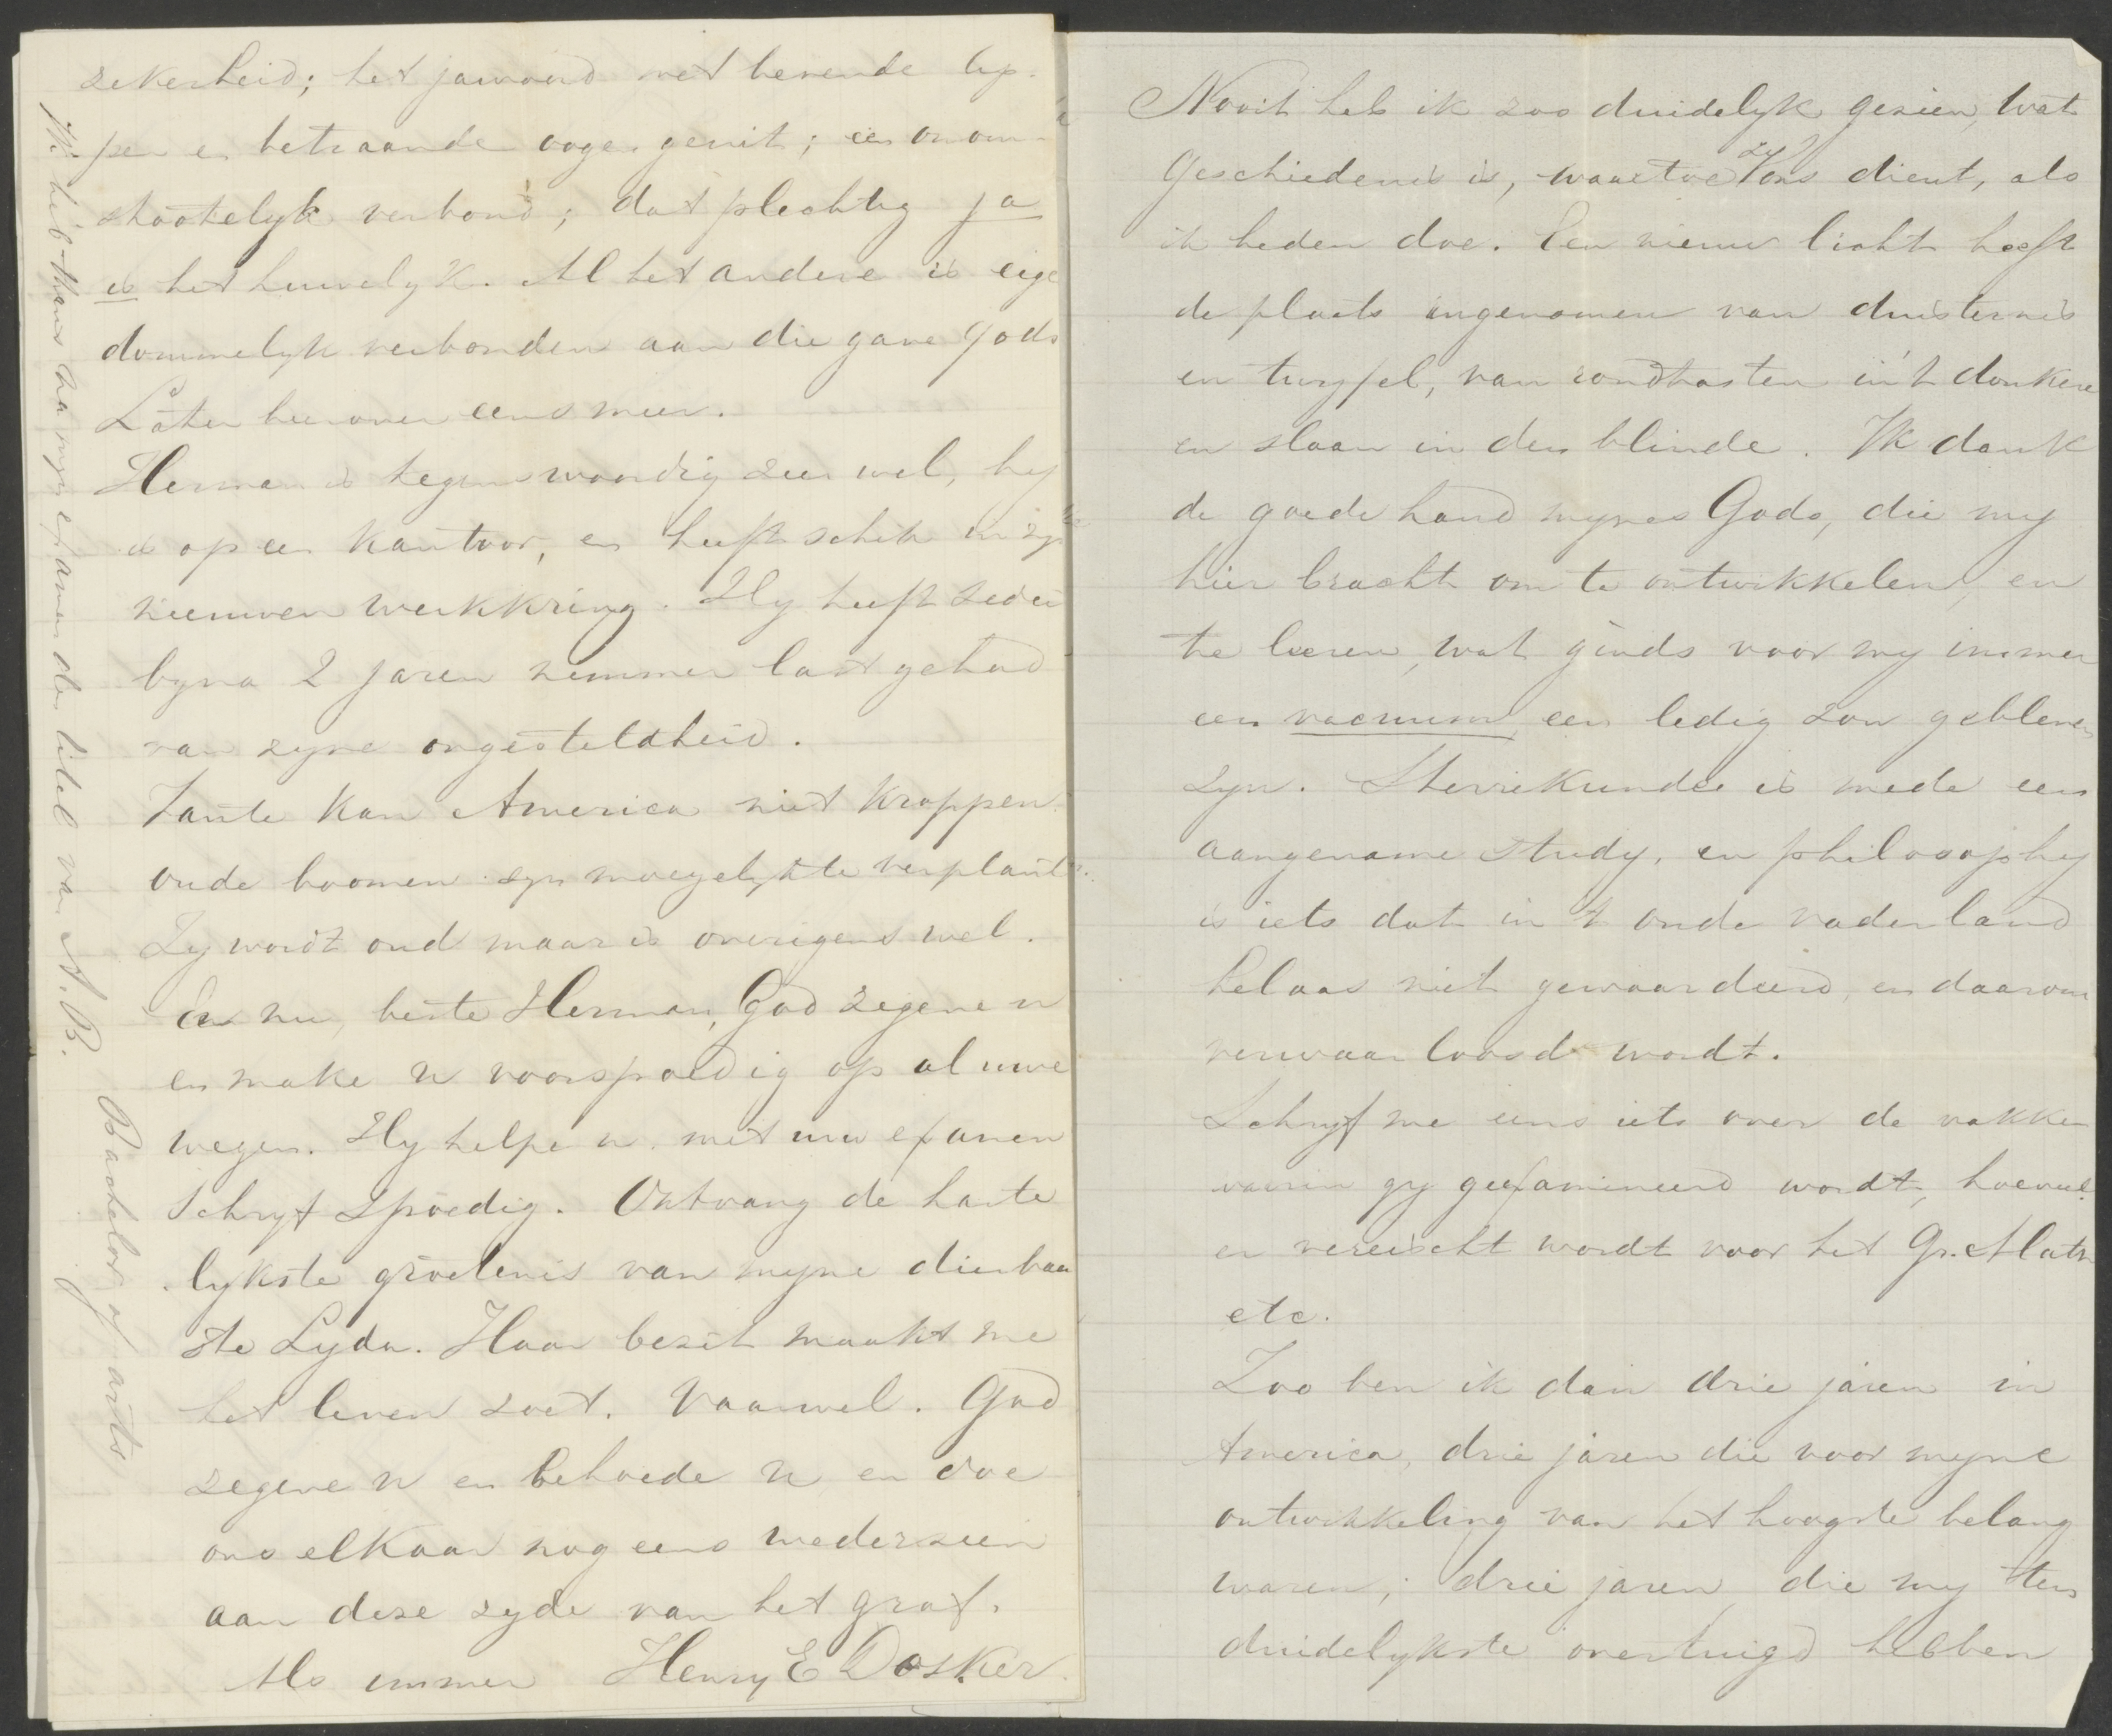 zekerheid; het jawoord met bevende lip-
pen en betraande oogen geuit; een onom-
stootelyk verbond; dat plechtig ja
is het huwelyk. Al het andere is eige
dommelyk verbonden aan die gave Gods
Later hierover eens meer.
Herman is tegenswoordig zeer wel, hy
is op een kantoor, en heeft schik in zyn
nieuwen werkkring. Hy heeft zeder
byna 2 jaren nimmer last gehad
van zyne ongesteldheid.
Tante kan America niet kroppen
oude boomen zyn moeyelyk te verplant
Zy wordt oud maar is overigens wel.
En nu, beste Herman, God zegene u
en make u voorspoedig op al uwe
wegen. Hy helpe u met uw examen
Schryf spoedig. Ontvang de harte
lykste groetenis van myne dierbaar
ste Lyda. Haar bezit maakt me
het leven zoet. Vaarwel. God
zegene u en behoede u en doe
ons elkaar nog eens wederzien
aan deze zyde van het graf.
Als immer Henry E Dosker.
Ik heb thans na myn examen den titel van A.B.
Bachelor of arts
Nooit heb ik zoo duidelyk gezien, wat
Geschiedenis is, waartoe zy ons dient, als
ik heden doe. Een nieuw licht heeft
de plaats ingenomen van duisternis
en twyfel, van rondtasten in 't donkere
en slaan in den blinde. Ik dank
de goede hand mynes Gods, die my
hier bracht om te ontwikkelen, en
te leeren, wat ginds voor my immer
een vacuum, een ledig zou gebleven
zyn. Sterrekunde is mede een
aangename study, en philosophy
is iets dat in 't oude vaderland
helaas niet gewaardeerd, en daarom
verwaarloosd wordt.
Schryf me eens iets over de vakken
waarin gy geexamineerd wordt, hoeveel
er vereischt wordt voor het Gr. Math
etc.
Zoo ben ik dan drie jaren in
America, drie jaren die voor myne
ontwikkeling van het hoogste belang
waren; drie jaren die my ten
duidelykste overtuigd hebben